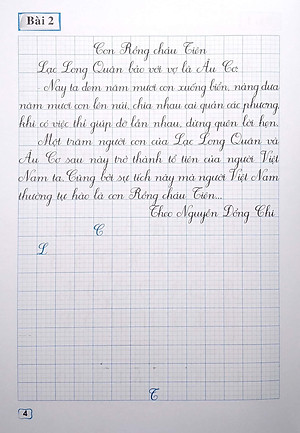 Bài 2
Con Rồng cháu Tiên
Lạc Long Quân bảo với vợ là Âu Cơ:
Nay ta đem năm mươi con xuống biển, nàng đưa
năm mươi con lên núi, chia nhau cai quản các phương,
khi có việc thì giúp đỡ lẫn nhau, đừng quên lời hẹn.
Một trăm người con của Lạc Long Quân và
Âu Cơ sau này trở thành tổ tiên của người Việt
Nam ta. Cũng bởi sự tích này mà người Việt Nam
thường tự hào là con Rồng cháu Tiên...
Theo Nguyễn Đổng Chi
C
L
T
4